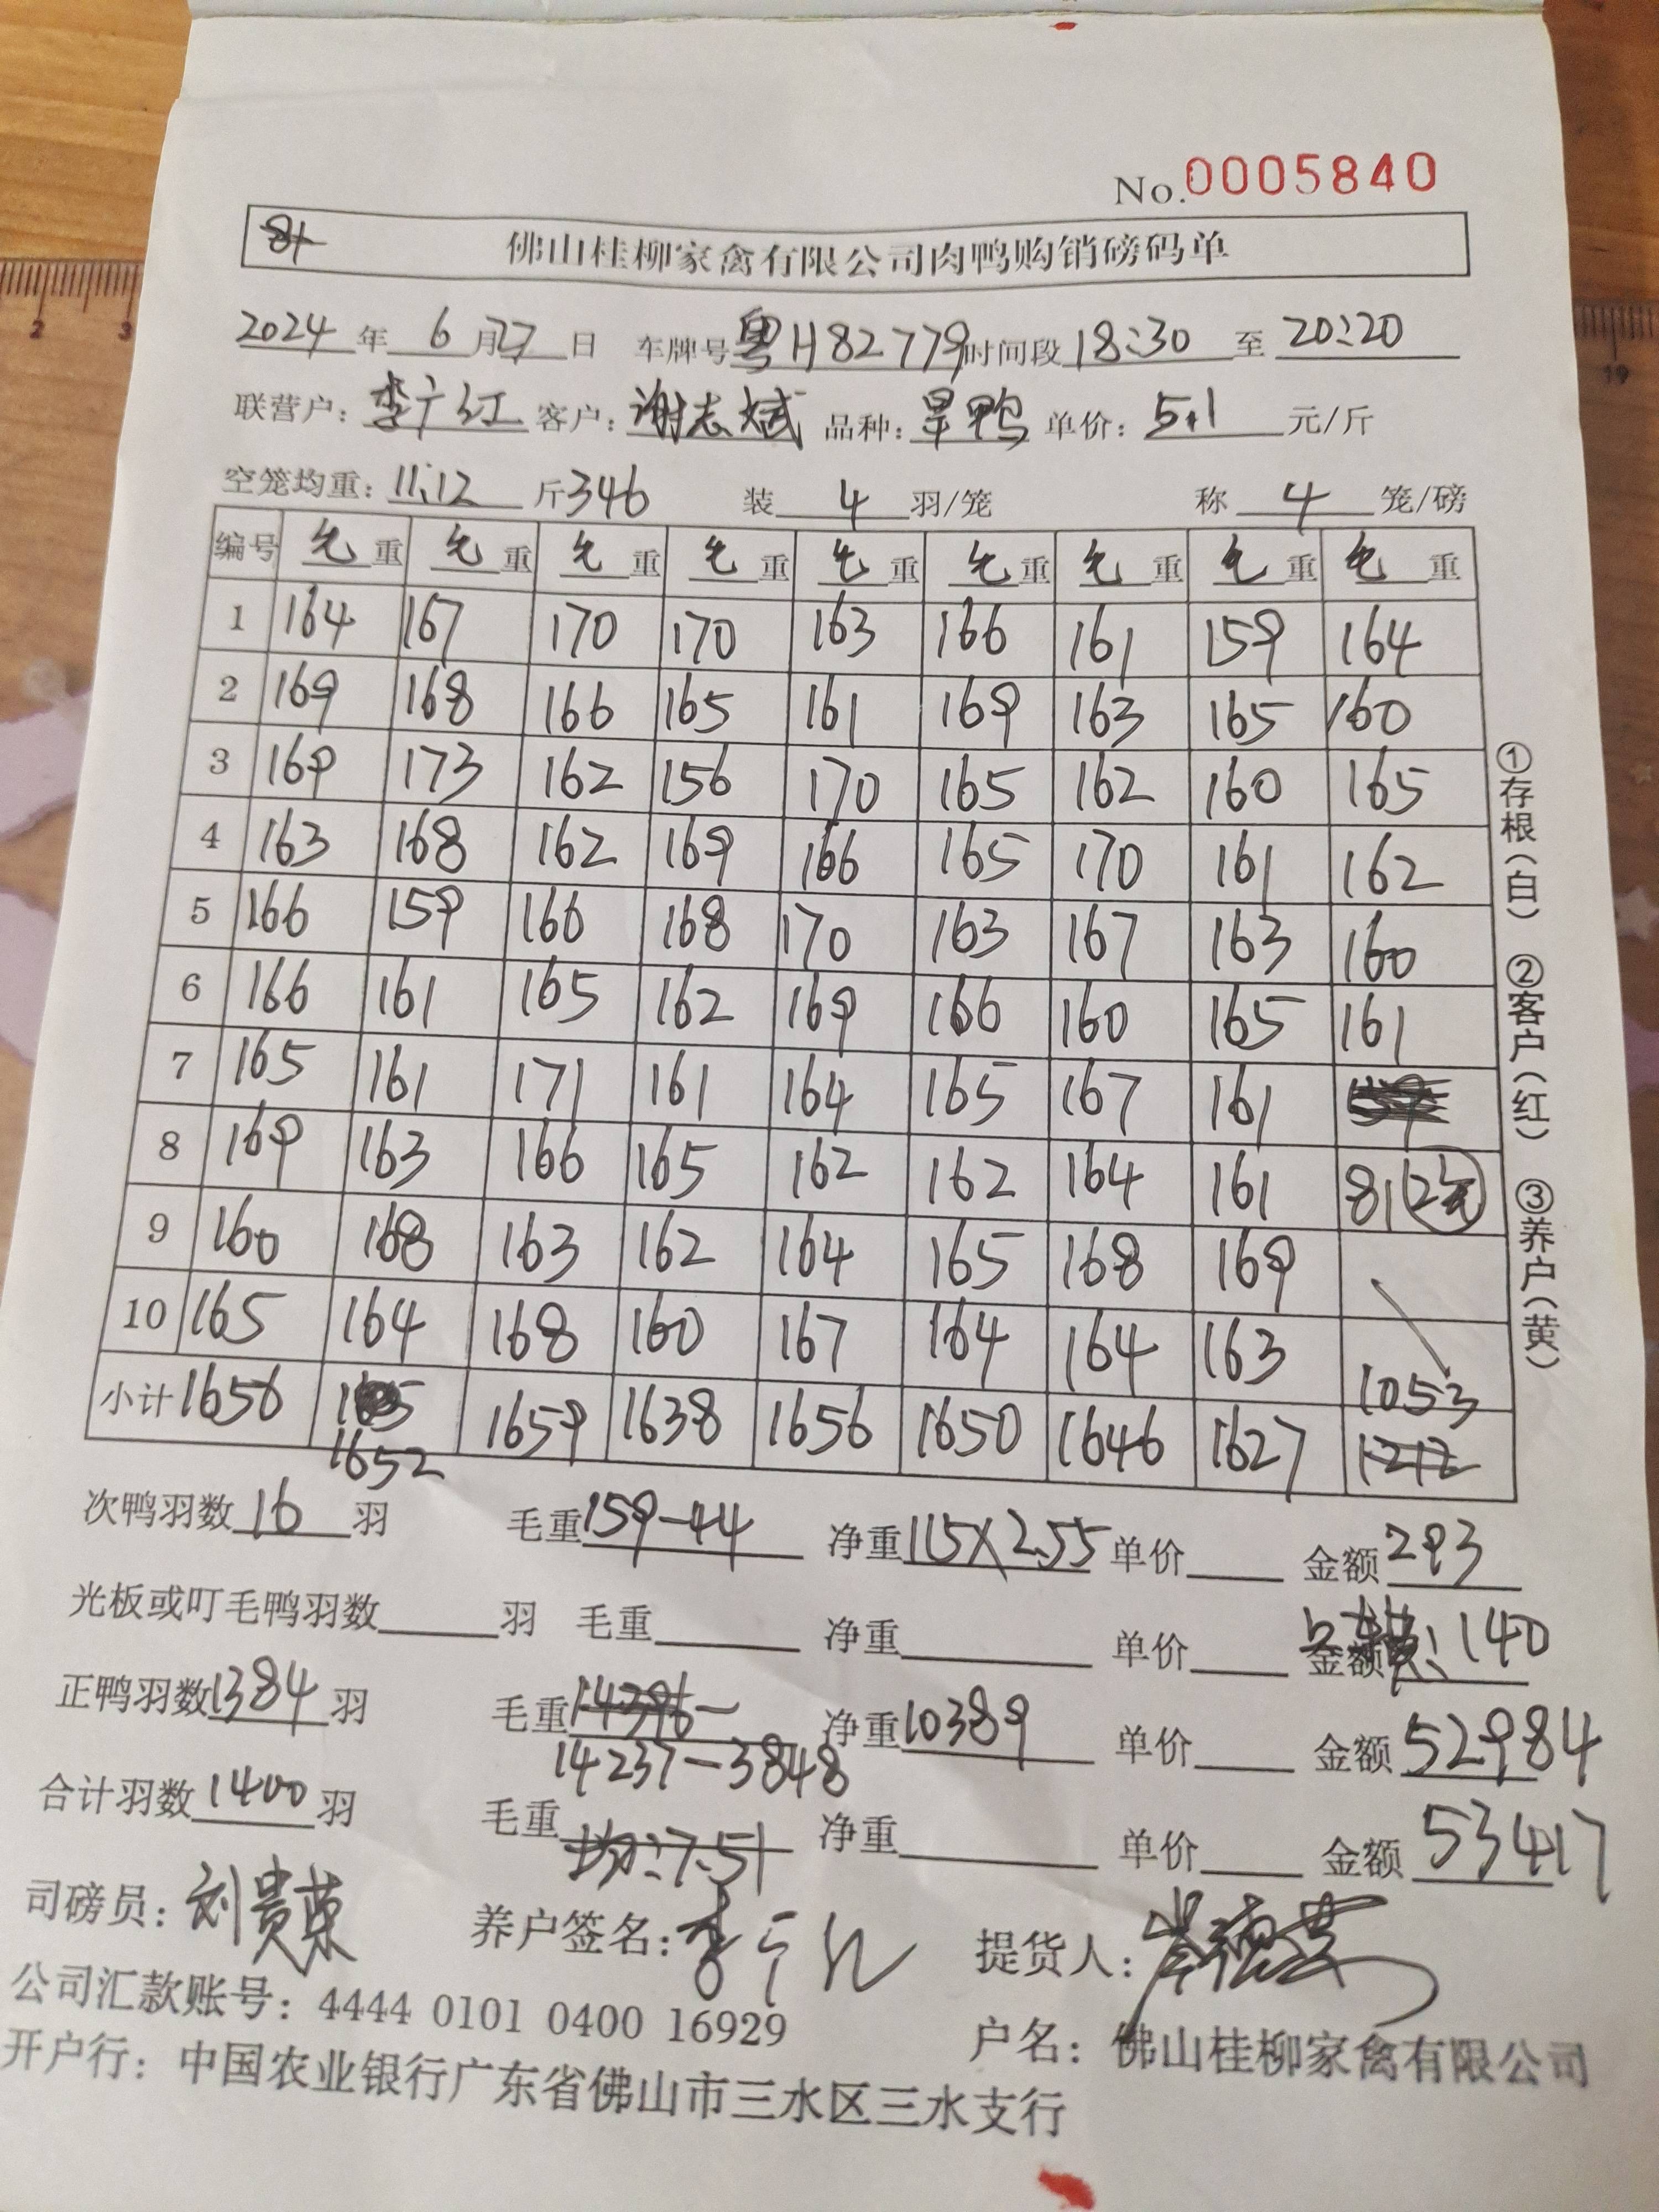 No.0005840
81 佛山桂柳家禽有限公司肉鸭购销磅码单
2024 年 6 月 27 日 车牌号 粤H82779 时间段 18:30 至 20:20
联营户: 李广红 客户: 谢志斌 品种: 旱鸭 单价: 5.1 元/斤
空笼均重: 11.12 斤 346 装 4 羽/笼 称 4 笼/磅
编号 毛重 毛重 毛重 毛重 毛重 毛重 毛重 毛重 毛重
1 164 167 170 170 163 166 161 159 164
2 169 168 166 165 161 169 163 165 160
3 169 173 162 156 170 165 162 160 165
4 163 168 162 169 166 165 170 161 162
5 166 159 166 168 170 163 167 163 160
6 166 161 165 162 169 166 160 165 161
7 165 161 171 161 164 165 167 161 159
8 169 163 166 165 162 162 164 161 81
9 160 168 163 162 164 165 168 169
10 165 164 168 160 167 164 164 163
1053
小计 1656 1659 1638 1656 1650 1646 1627 1212
1652
次鸭羽数 16 羽 毛重 159-44 净重 115×2.55 单价 金额 293
光板或叮毛鸭羽数 羽 毛重 净重 单价 金额 140
正鸭羽数 1384 羽 毛重 14396- 净重 10389 单价 金额 52984
14237-3848
合计羽数 1400 羽 毛重 均:7.51 净重 单价 金额 53417
司磅员: 刘贵荣 养户签名: 李广红 提货人:
公司汇款账号: 4444 0101 0400 16929 户名: 佛山桂柳家禽有限公司
开户行: 中国农业银行广东省佛山市三水区三水支行
①存根(白) ②客户(红) ③养户(黄)